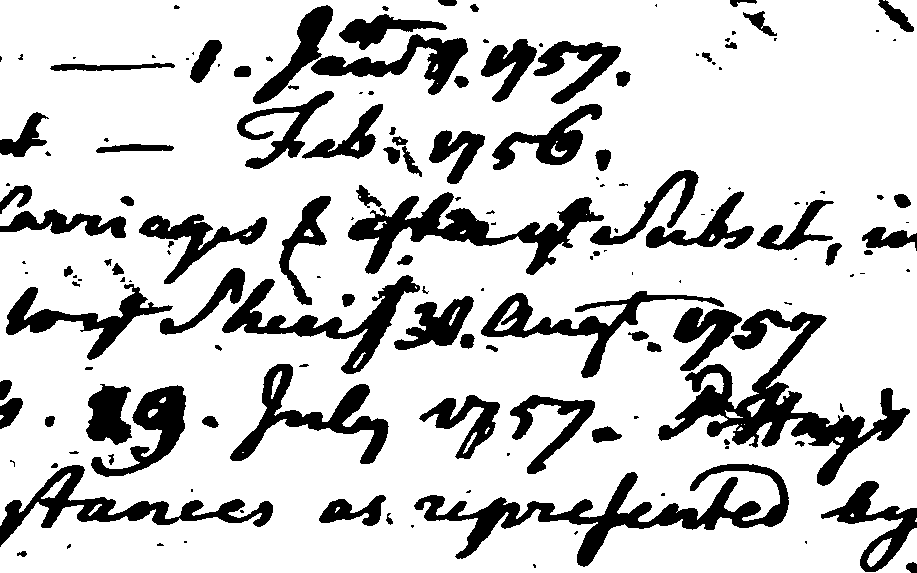 — 1. Janry. 1757.
— Feb. 1756.
Carriages & after yt Subset, in
to yt Sheriff 30. Augt. 1757
29. July 1757. P. Hay's
stances as represented by